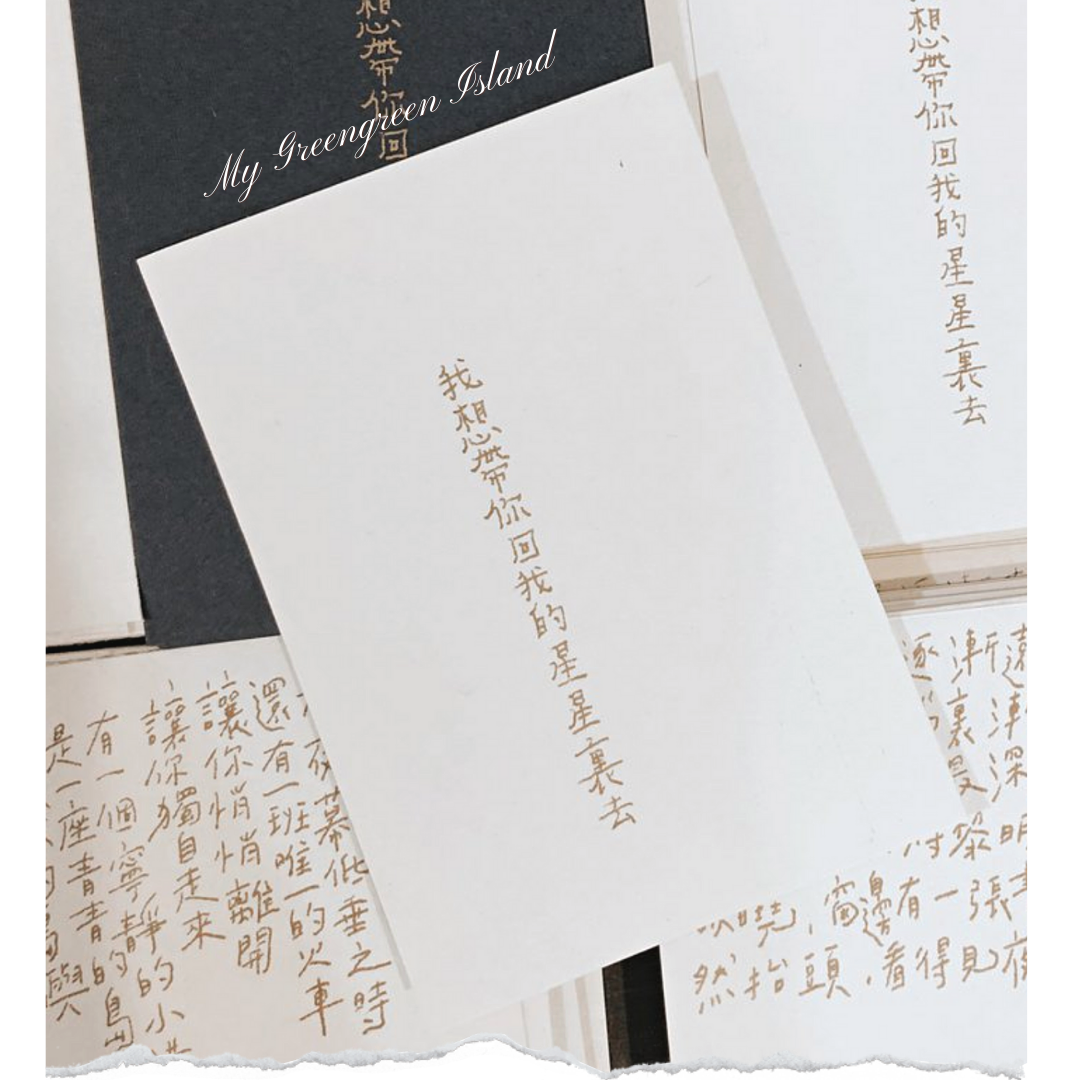 想帶你回
My Greengreen Island
想帶你回我的星星裏去
我想帶你回我的星星裏去
夜幕低垂之時
還有一班唯一的火車
讓你悄悄離開
讓你獨自走來
有一個寧靜的小
是一座青青的島
島嶼
逐漸遠
裏漸
深
黎明
窗邊有一張
然抬頭，看得見夜